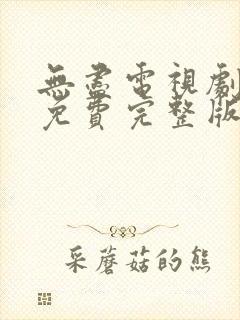 無盡電視劇
免費完整版
采蘑菇的熊